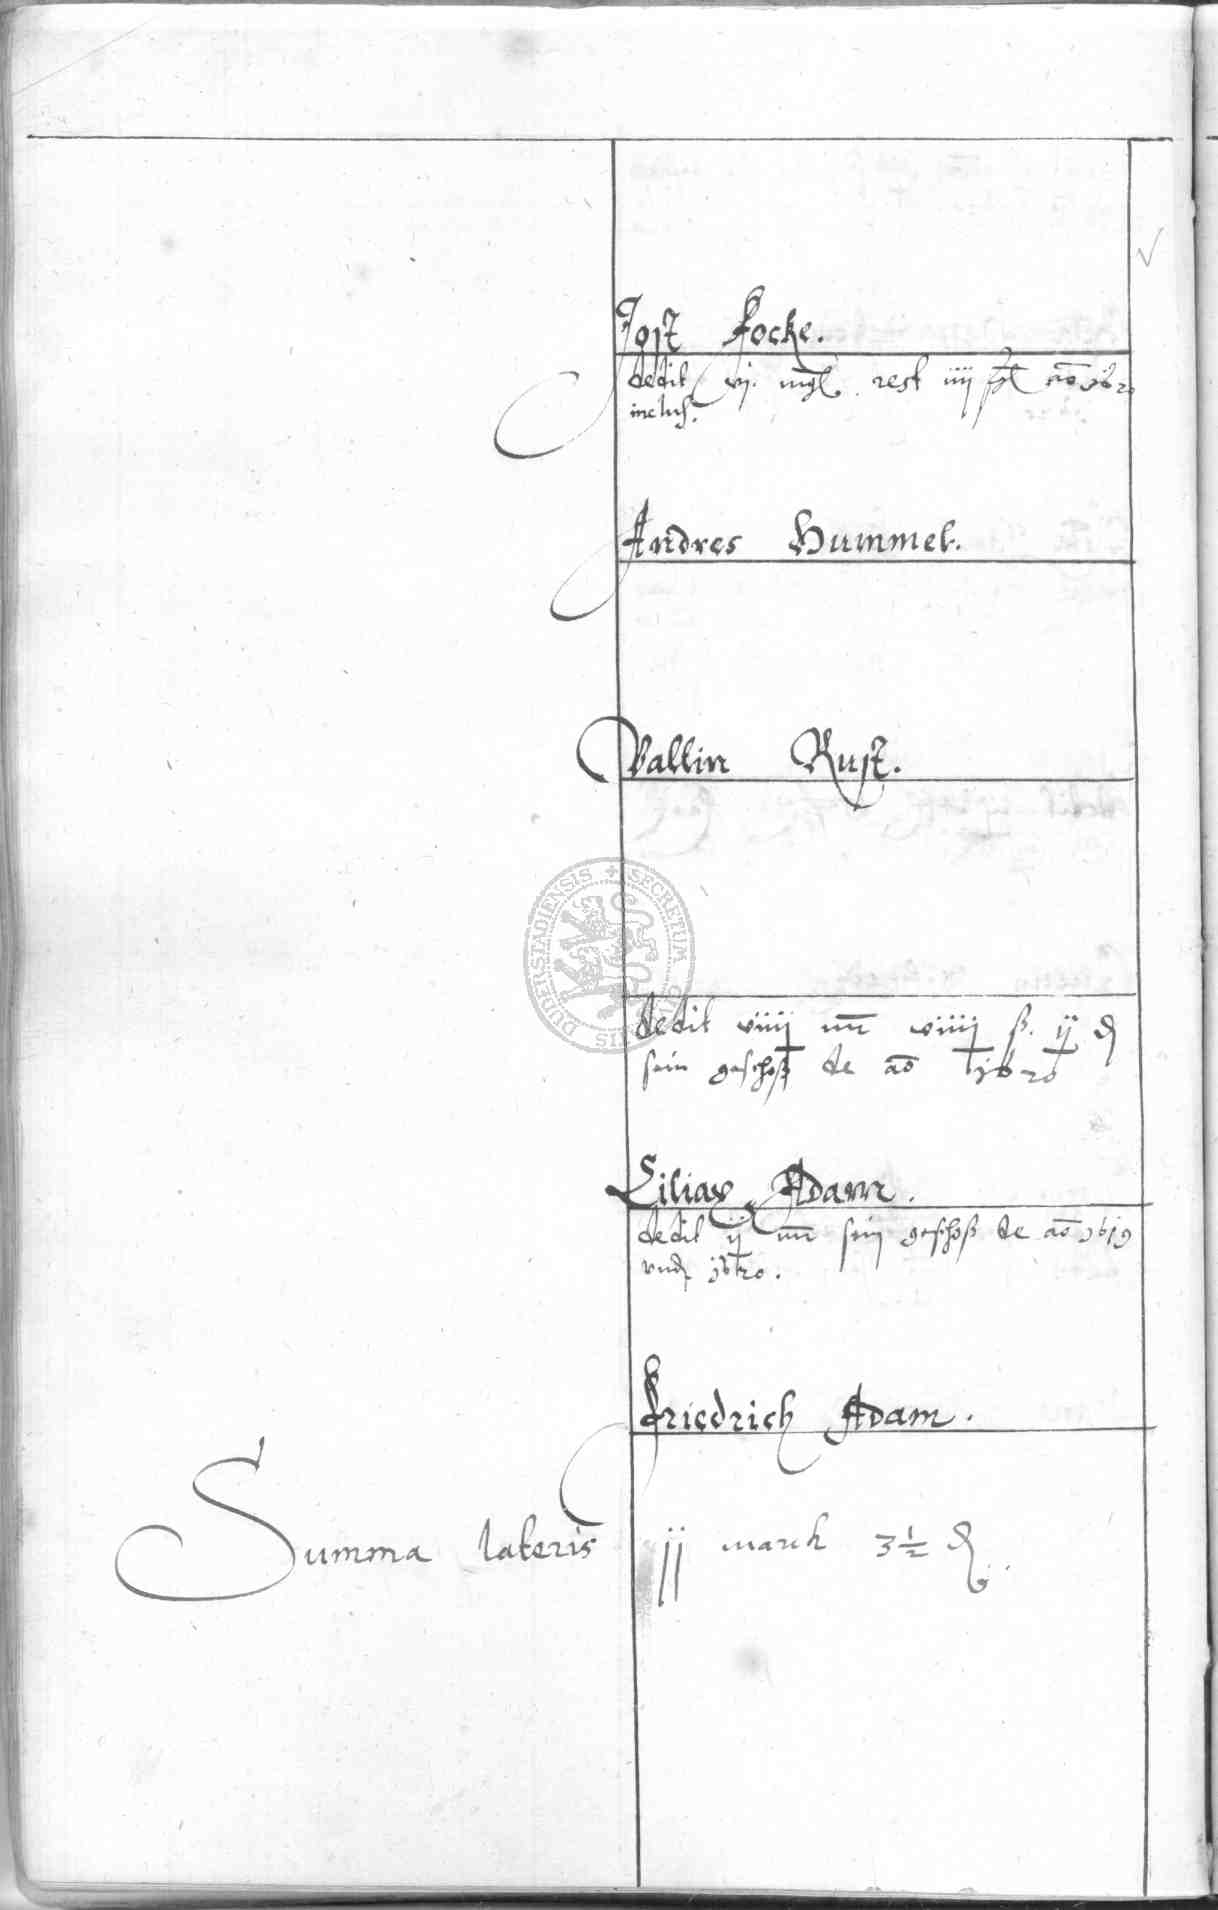 Jost Focke.
dedit vj. mgl. rest iiij ao 1620
inclus.
Andres Hummel.
Valtin Rust.
DUDERSTADIENSIS + SECRETUM
dedit viiij mr viiij ß. ij ₰
sein geschoß de ao 1620
Ciliax Adam.
dedit ij mr sein geschoß de ao 1619
und 1620.
Friedrich Adam.
Summa lateris ij march 3 1/2 ₰.